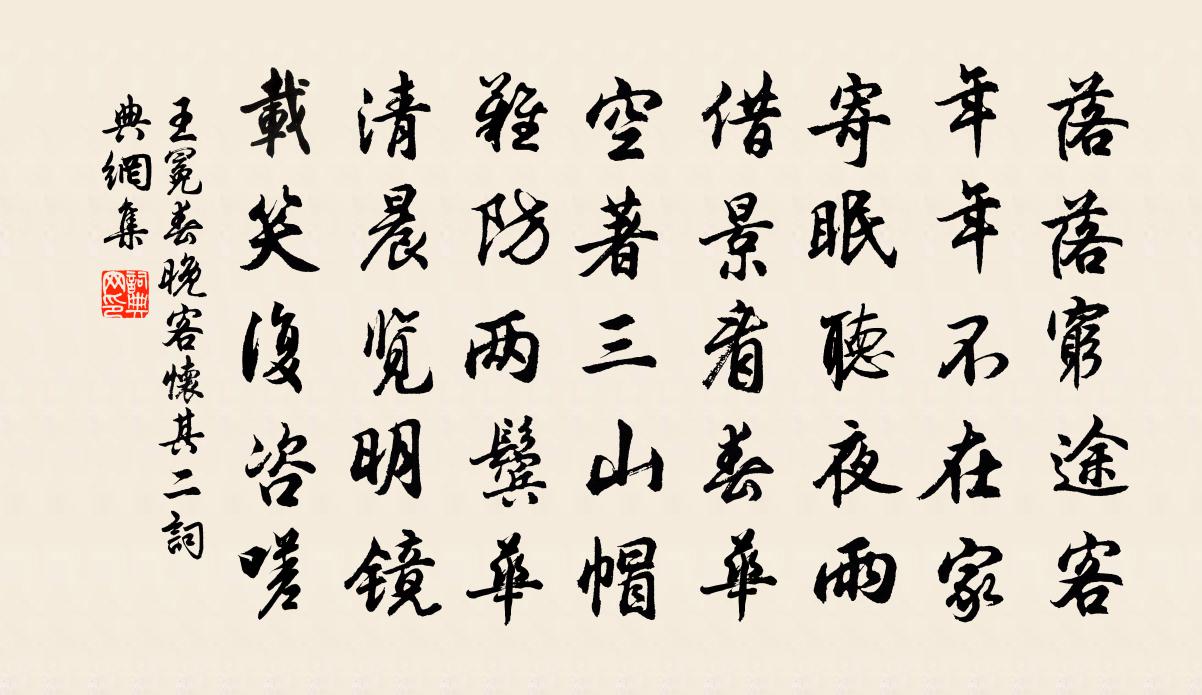 落落窮途客
年年不在家
寄眠聽夜雨
借景看春華
空著三山帽
難防两鬢華
清晨览明镜
載笑復咨嗟
王冕春晚客懷其二詞
典網集
詞典网印